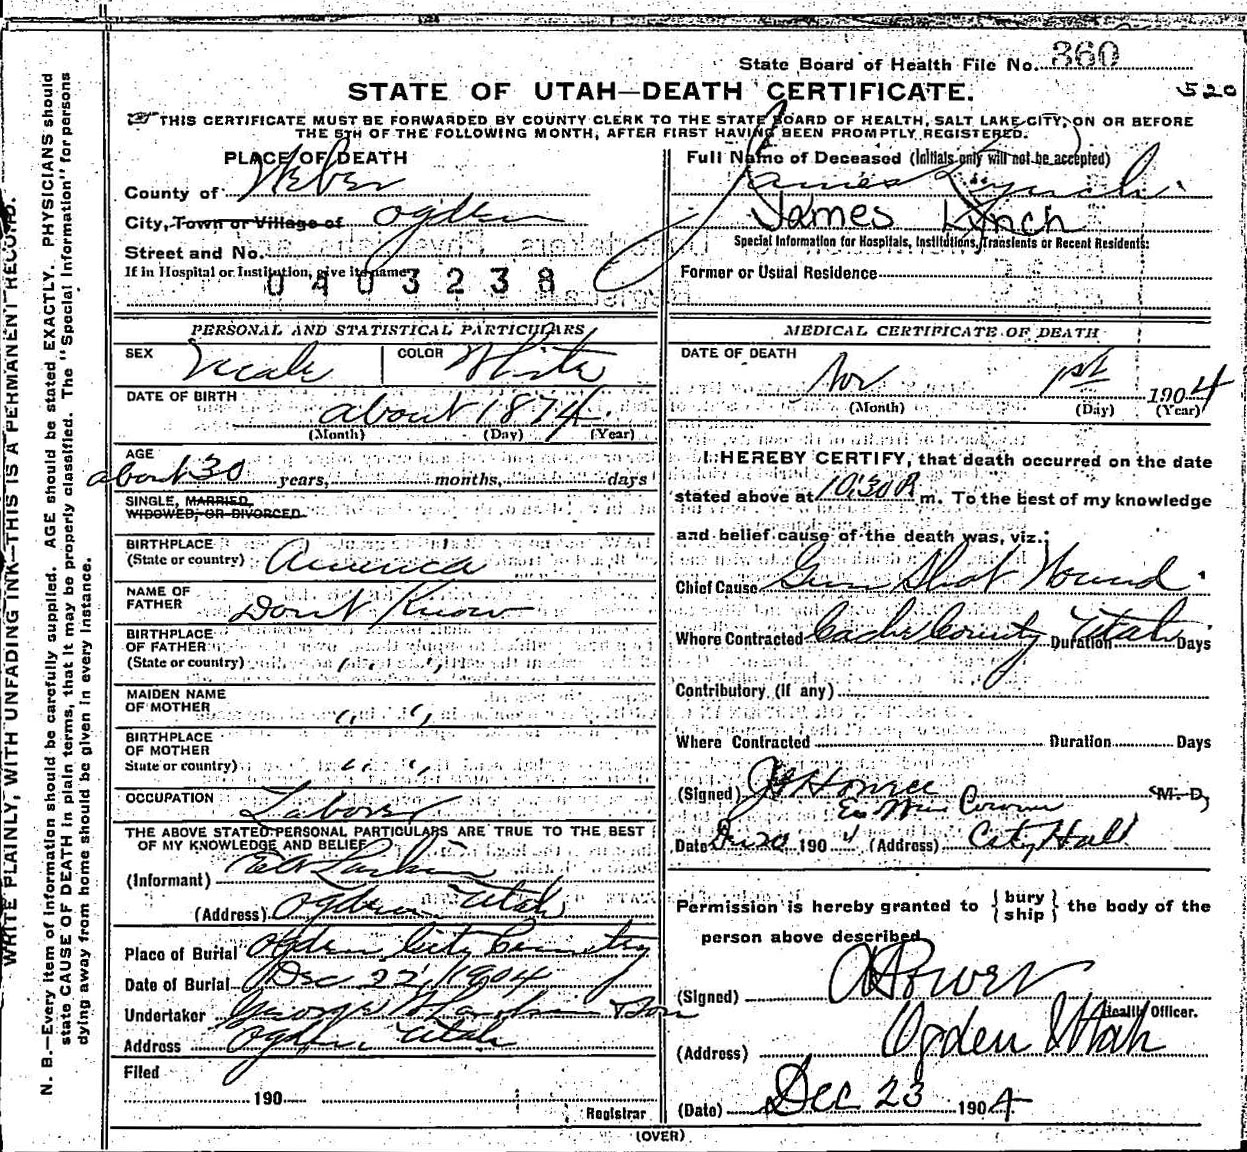 State Board of Health File No. 360
520
STATE OF UTAH—DEATH CERTIFICATE.
THIS CERTIFICATE MUST BE FORWARDED BY COUNTY CLERK TO THE STATE BOARD OF HEALTH, SALT LAKE CITY, ON OR BEFORE
THE 5TH OF THE FOLLOWING MONTH, AFTER FIRST HAVING BEEN PROMPTLY REGISTERED.
PLACE OF DEATH
County of Weber
City, Town or Village of Ogden
Street and No.
If in Hospital or Institution, give its name
0403238
Full Name of Deceased (Initials only will not be accepted)
James Lynch
James Lynch
Special Information for Hospitals, Institutions, Transients or Recent Residents:
Former or Usual Residence
PERSONAL AND STATISTICAL PARTICULARS
SEX Male COLOR White
DATE OF BIRTH
about 1874
(Month) (Day) (Year)
AGE
about 30 years, months, days
SINGLE, MARRIED,
WIDOWED, OR DIVORCED
BIRTHPLACE
(State or country) America
NAME OF
FATHER Dont Know
BIRTHPLACE
OF FATHER
(State or country) " "
MAIDEN NAME
OF MOTHER " "
BIRTHPLACE
OF MOTHER
State or country) " "
OCCUPATION Laborer
THE ABOVE STATED PERSONAL PARTICULARS ARE TRUE TO THE BEST
OF MY KNOWLEDGE AND BELIEF
(Informant) Larkin
(Address) Ogden Utah
Place of Burial Ogden City Cemetery
Date of Burial Dec 22, 1904
Undertaker George W Larkin & Son
Address Ogden Utah
Filed
190
Registrar
MEDICAL CERTIFICATE OF DEATH
DATE OF DEATH
Nov 1st 1904
(Month) (Day) (Year)
I HEREBY CERTIFY, that death occurred on the date
stated above at 10:30 P m. To the best of my knowledge
and belief cause of the death was, viz.:
Chief Cause Gun Shot Wound
Where Contracted Cache County Utah Duration Days
Contributory (if any)
Where Contracted Duration Days
(Signed) M. D.
Date Dec 20 1904 (Address) City Hall
Permission is hereby granted to {bury ship} the body of the
person above described
(Signed)
Health Officer.
(Address) Ogden Utah
(Date) Dec 23 1904
(OVER)
WRITE PLAINLY, WITH UNFADING INK—THIS IS A PERMANENT RECORD.
N. B.—Every item of information should be carefully supplied. AGE should be stated EXACTLY. PHYSICIANS should
state CAUSE OF DEATH in plain terms, that it may be properly classified. The "Special Information" for persons
dying away from home should be given in every instance.